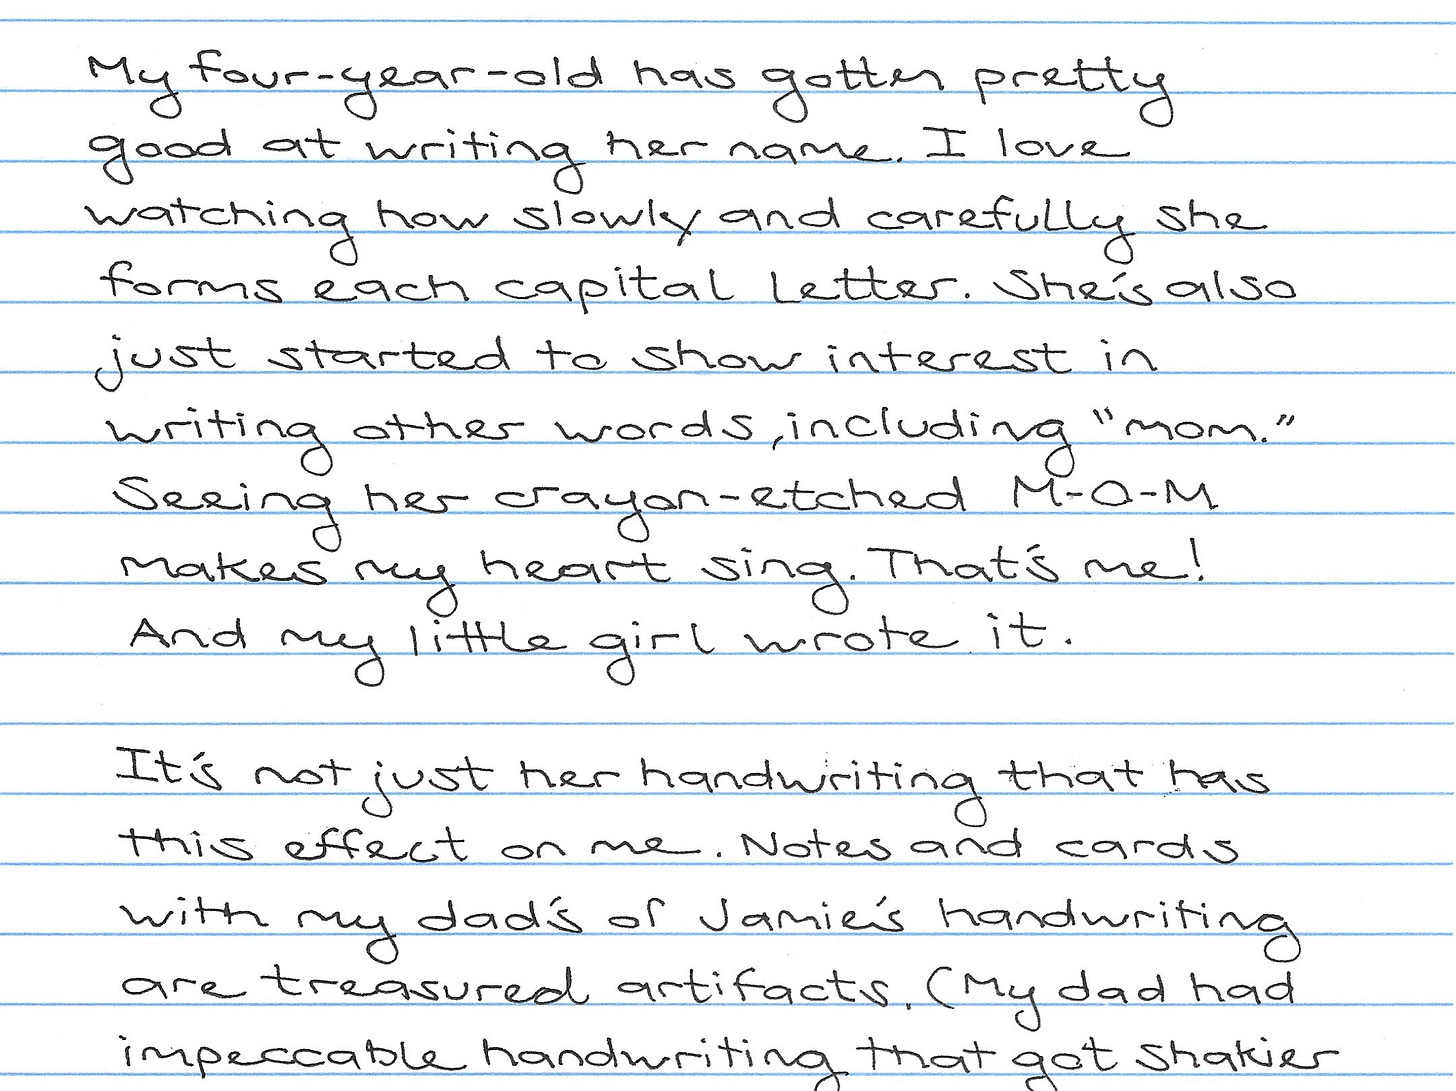 My four-year-old has gotten pretty
good at writing her name. I love
watching how slowly and carefully she
forms each capital letter. She's also
just started to show interest in
writing other words, including "mom."
Seeing her crayon-etched M-O-M
makes my heart sing. That's me!
And my little girl wrote it.
It's not just her handwriting that has
this effect on me. Notes and cards
with my dad's or Jamie's handwriting
are treasured artifacts. (My dad had
impeccable handwriting that got shakier